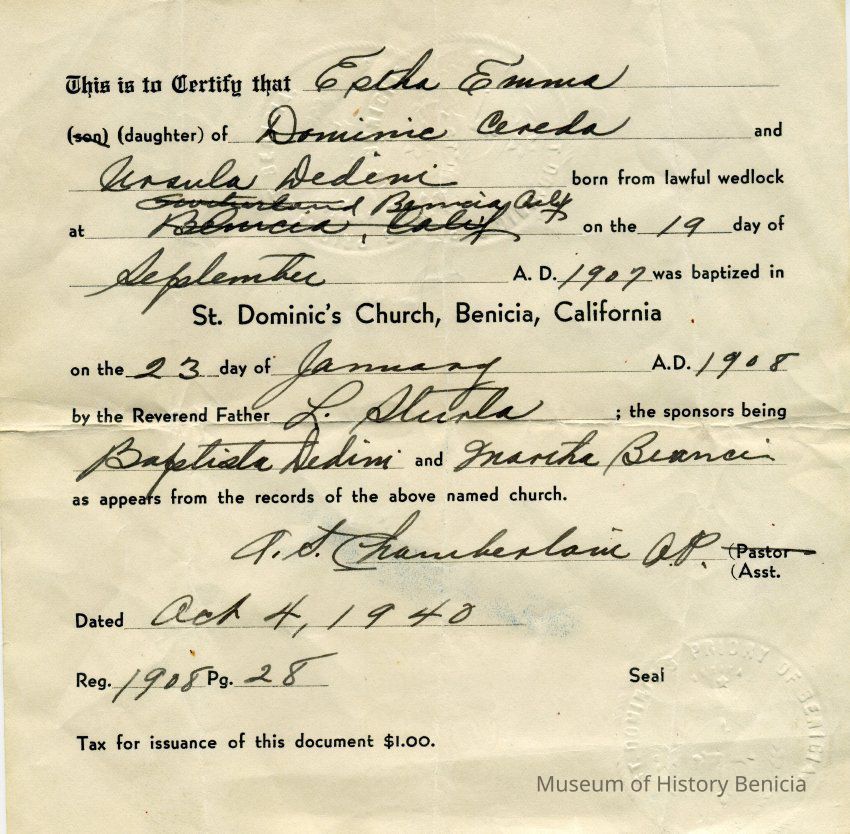 This is to Certify that Estha Emma
(son) (daughter) of Dominic Cereda and
Ursula Dedini born from lawful wedlock
Switzerland Benicia, Calif
at Benicia, Calif on the 19 day of
September A. D. 1907 was baptized in
St. Dominic's Church, Benicia, California
on the 23 day of January A.D. 1908
by the Reverend Father L. Sturla ; the sponsors being
Baptista Dedini and Martha Bianci
as appears from the records of the above named church.
A. S. Chamberlain O.P. (Pastor
(Asst.
Dated Oct 4, 1940
Reg. 1908 Pg. 28 Seal
Tax for issuance of this document $1.00.
Museum of History Benicia